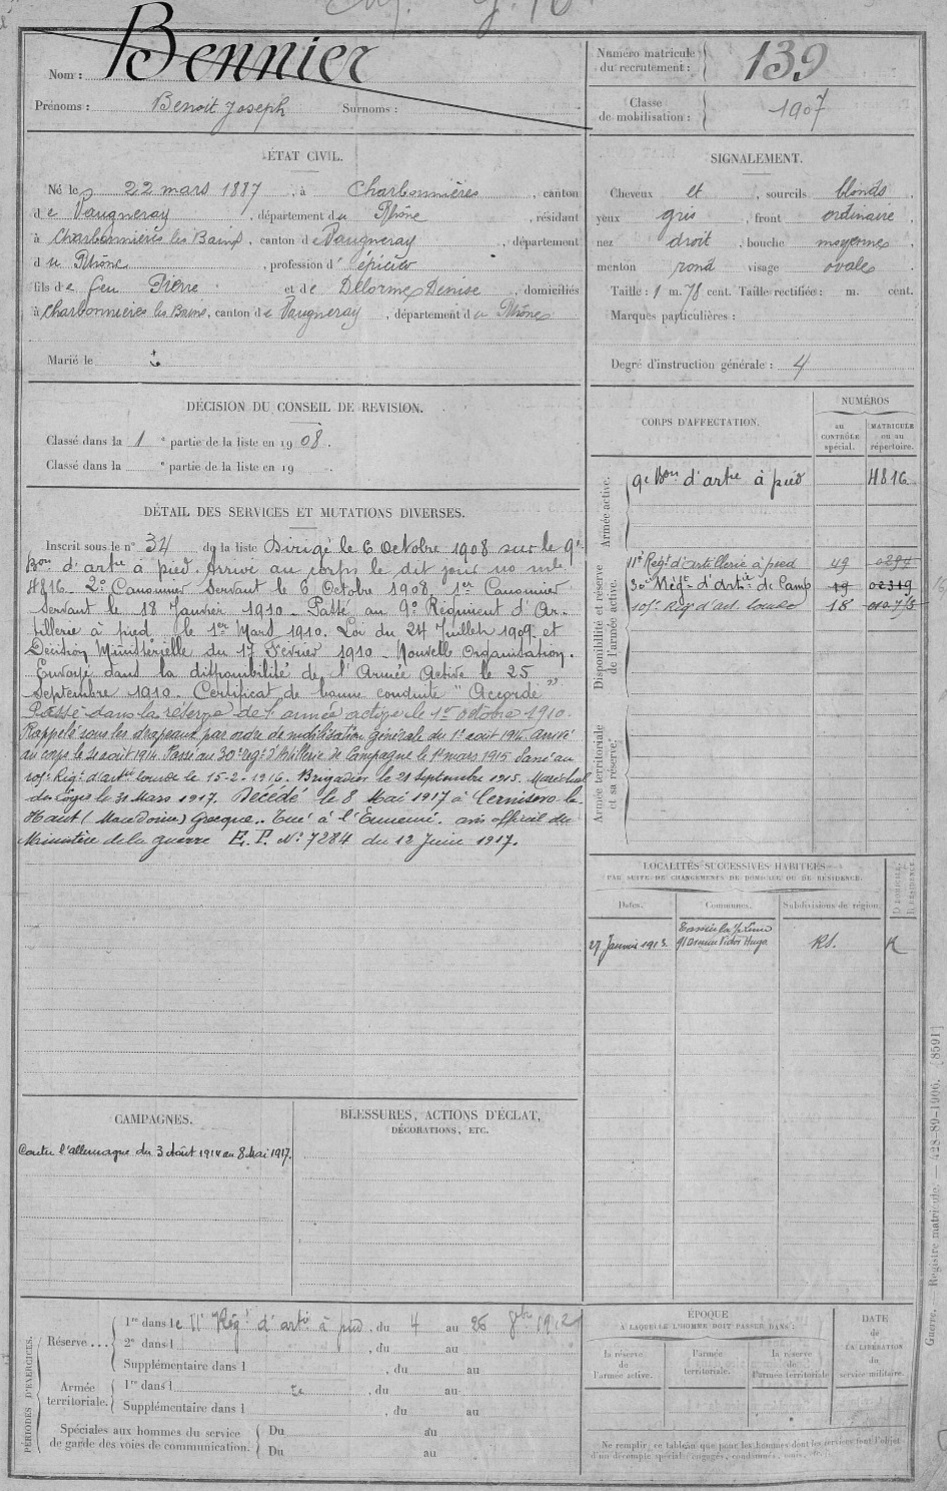 Nom : Bennier
Prénoms : Benoit Joseph Surnoms :
Numéro matricule du recrutement : 139
Classe de mobilisation : 1907
ÉTAT CIVIL.
Né le 22 mars 1887, à Charbonnières, canton
de Vaugneray, département du Rhône, résidant
à Charbonnières les Bains, canton de Vaugneray, département
du Rhône, profession d'épicier
fils de feu Pierre et de Delorme Denise, domiciliés
à Charbonnières les Bains, canton de Vaugneray, département du Rhône
Marié le
SIGNALEMENT.
Cheveux et, sourcils blonds,
yeux gris, front ordinaire,
nez droit, bouche moyenne,
menton rond visage ovale
Taille : 1 m. 78 cent. Taille rectifiée : m. cent.
Marques particulières :
Degré d'instruction générale : 4
DÉCISION DU CONSEIL DE REVISION.
Classé dans la 1e partie de la liste en 1908.
Classé dans la e partie de la liste en 19 .
DÉTAIL DES SERVICES ET MUTATIONS DIVERSES.
Inscrit sous le n° 34 de la liste Dirigé le 6 octobre 1908 sur le 9e
Bon d'artie à pied. Arrivé au corps le dit jour no mle
4816. 2e Canonnier Servant le 6 Octobre 1908. 1er Canonnier
servant le 18 Janvier 1910. Passé au 9e Régiment d'Ar-
tillerie à pied le 1er Mars 1910. Loi du 24 Juillet 1909 et
Décision Ministérielle du 17 Février 1910. Nouvelle Organisation.
Envoyé dans la disponibilité de l'Armée Active le 25
Septembre 1910. Certificat de bonne conduite "Accordé"
Passé dans la réserve de l'armée active le 1er octobre 1910.
Rappelé sous les drapeaux par ordre de mobilisation générale du 1er août 1914. Arrivé
au corps le 4 août 1914. Passé au 30e régt d'Artillerie de Campagne le 1er mars 1915 Passé au
Régt d'artie lourde le 15-2-1916. Brigadier le 21 septembre 1915. Marechal
des Logis le 31 Mars 1917. Décédé le 8 Mai 1917 à le-
Haut (Macédoine) Grecque. Tué à l'Ennemi. avis officiel du
Ministère de la guerre E.P. N° 7284 du 12 Juin 1917.
CORPS D'AFFECTATION.
NUMÉROS
au CONTRÔLE spécial.
MATRICULE ou au répertoire.
Armée active.
9e Bon d'artie à pied 4816
Disponibilité et réserve de l'armée active.
11e Régt d'artillerie à pied 49
30e Régt d'Artie de Camp 19 02319
Régt d'art. lourde 18
Armée territoriale et sa réserve.
LOCALITÉS SUCCESSIVES HABITÉES
PAR SUITE DE CHANGEMENTS DE DOMICILE OU DE RÉSIDENCE.
Dates. Communes. Subdivisions de région. D. DOMICILE. R. RÉSIDENCE
27 Janvier 1913. Tassin la ½ Lune
91 avenue Victor Hugo R
CAMPAGNES.
Contre l'allemagne du 3 Août 1914 au 8 Mai 1917.
BLESSURES, ACTIONS D'ÉCLAT,
DÉCORATIONS, ETC.
PÉRIODES D'EXERCICES.
Réserve . . .
1re dans le 11e Régt d'artie à pied, du 4 au 26 8bre 1912
2e dans l , du au
Supplémentaire dans l , du au
Armée territoriale.
1re dans l , du au
Supplémentaire dans l , du au
Spéciales aux hommes du service de garde des voies de communication.
Du au
Du au
ÉPOQUE
A LAQUELLE L'HOMME DOIT PASSER DANS :
la réserve de l'armée active.
l'armée territoriale.
la réserve de l'armée territoriale
DATE de LA LIBÉRATION du service militaire.
Ne remplir ce tableau que pour les hommes dont les services font l'objet
d'un décompte spécial : engagés, condamnés, omis, etc.
Guerre. — Registre matricule. — 428-89-1906. [8591]